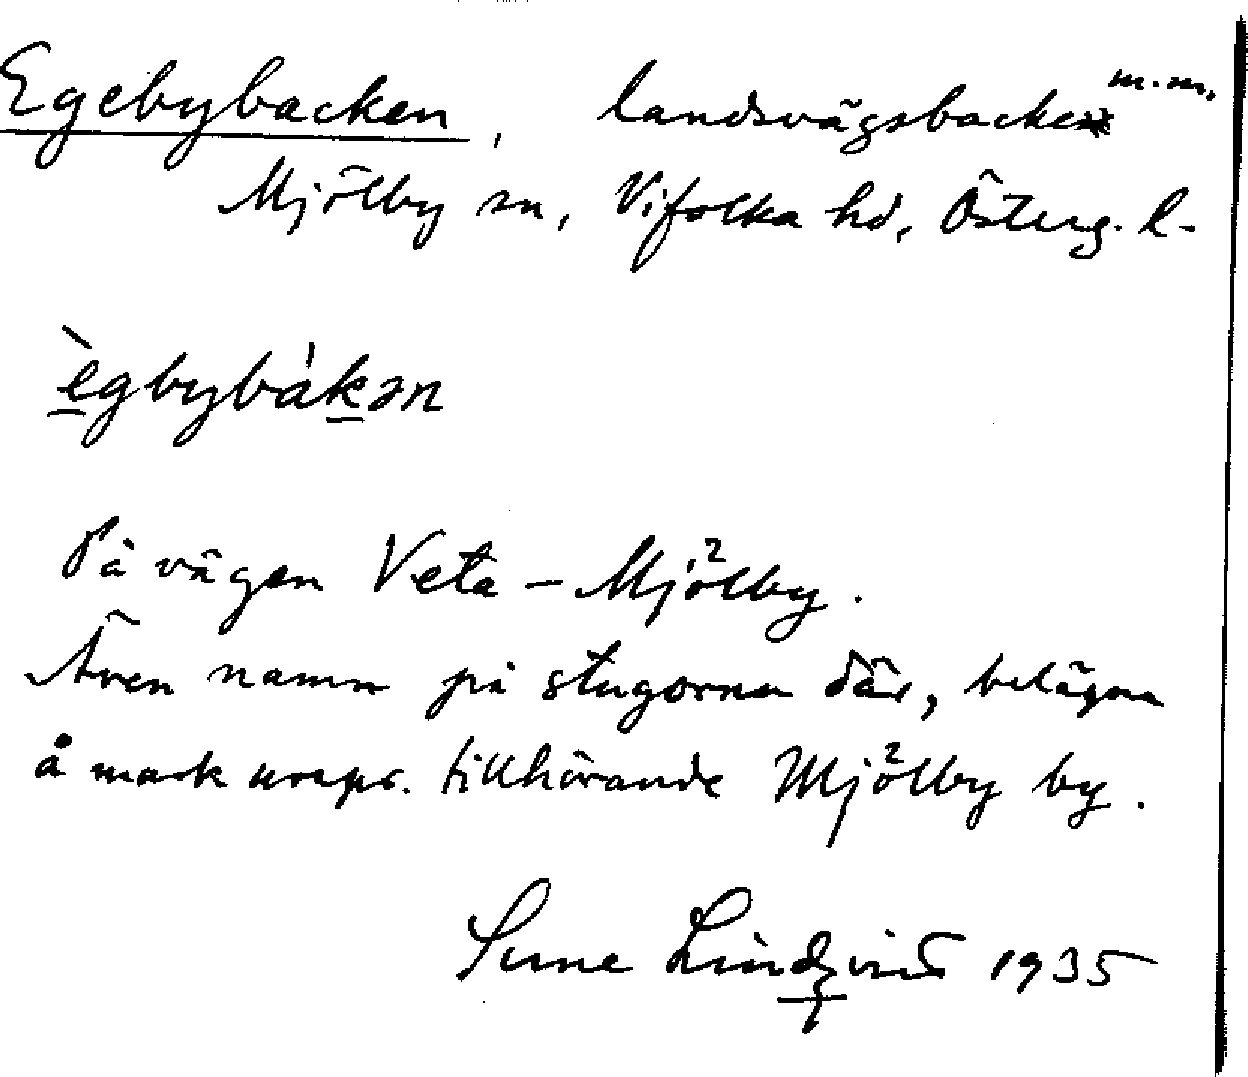 Egebybacken, landsvägsbacke m.m.
Mjölby sn, Vifolka hd, Österg. l.
ègbybákən
På vägen Veta – Mjölby.
Även namn på stugorna där, belägna
å mark urspr. tillhörande Mjölby by.
Sune Lindqvist 1935